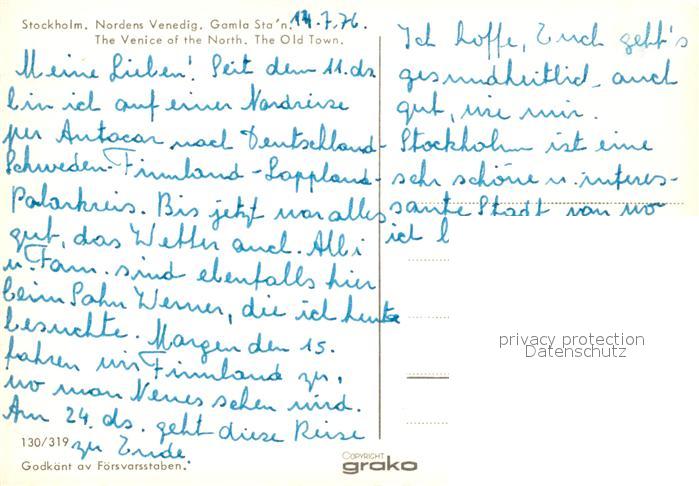 Stockholm. Nordens Venedig. Gamla Sta'n.
The Venice of the North. The Old Town.
14.7.76.
Meine Lieben! Seit dem 11. ds
bin ich auf einer Nordreise
per Autocar nach Deutschland-
Schweden-Finnland-Lappland-
Polarkreis. Bis jetzt war alles
gut, das Wetter auch. Albi
u. Fam. sind ebenfalls hier
beim Sohn Werner, die ich heute
besuchte. Morgen den 15.
fahren wir Finnland zu,
wo man Neues sehen wird.
Am 24. ds. geht diese Reise
zu Ende.
Ich hoffe, Euch geht's
gesundheitlich auch
gut, wie mir.
Stockholm ist eine
sehr schöne u. interes-
sante Stadt von wo
ich
privacy protection
Datenschutz
130/319
Godkänt av Försvarsstaben.
COPYRIGHT
grako